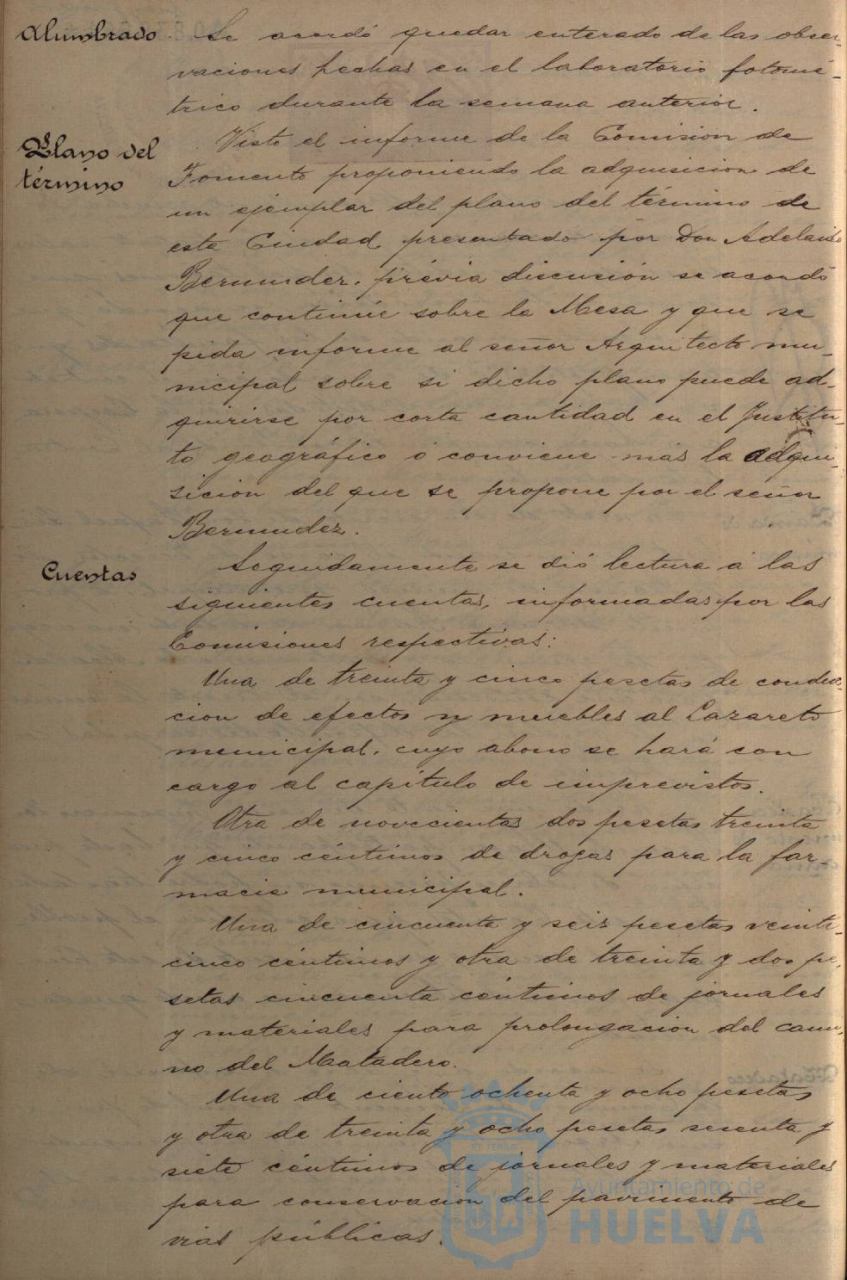 Alumbrado. Se acordó quedar enterado de las obser-
vaciones hechas en el laboratorio fotomé-
trico durante la semana anterior.
Plano del
término
Visto el informe de la Comision de
Fomento proponiendo la adquisicion de
un ejemplar del plano del término de
esta Ciudad presentado por Don Adelaido
Bermudez, prévia discusión se acordó
que continúe sobre la Mesa y que se
pida informe al señor Arquitecto mu-
nicipal sobre si dicho plano puede ad-
quirirse por corta cantidad en el Institu-
to geográfico ó conviene más la adqui-
sicion del que se propone por el señor
Bermudez.
Cuentas
Seguidamente se dió lectura á las
siguientes cuentas, informadas por las
Comisiones respectivas:
Una de treinta y cinco pesetas de conduc-
cion de efectos y muebles al Lazareto
municipal, cuyo abono se hará con
cargo al capítulo de imprevistos.
Otra de novecientas dos pesetas treinta
y cinco céntimos de drogas para la far-
macia municipal.
Una de cincuenta y seis pesetas veinti-
cinco céntimos y otra de treinta y dos pe-
setas cincuenta céntimos de jornales
y materiales para prolongacion del cami-
no del Matadero.
Una de ciento ochenta y ocho pesetas
y otra de treinta y ocho pesetas sesenta y
siete céntimos de jornales y materiales
para conservacion del pavimento de
vias públicas.
Ayuntamiento de
HUELVA